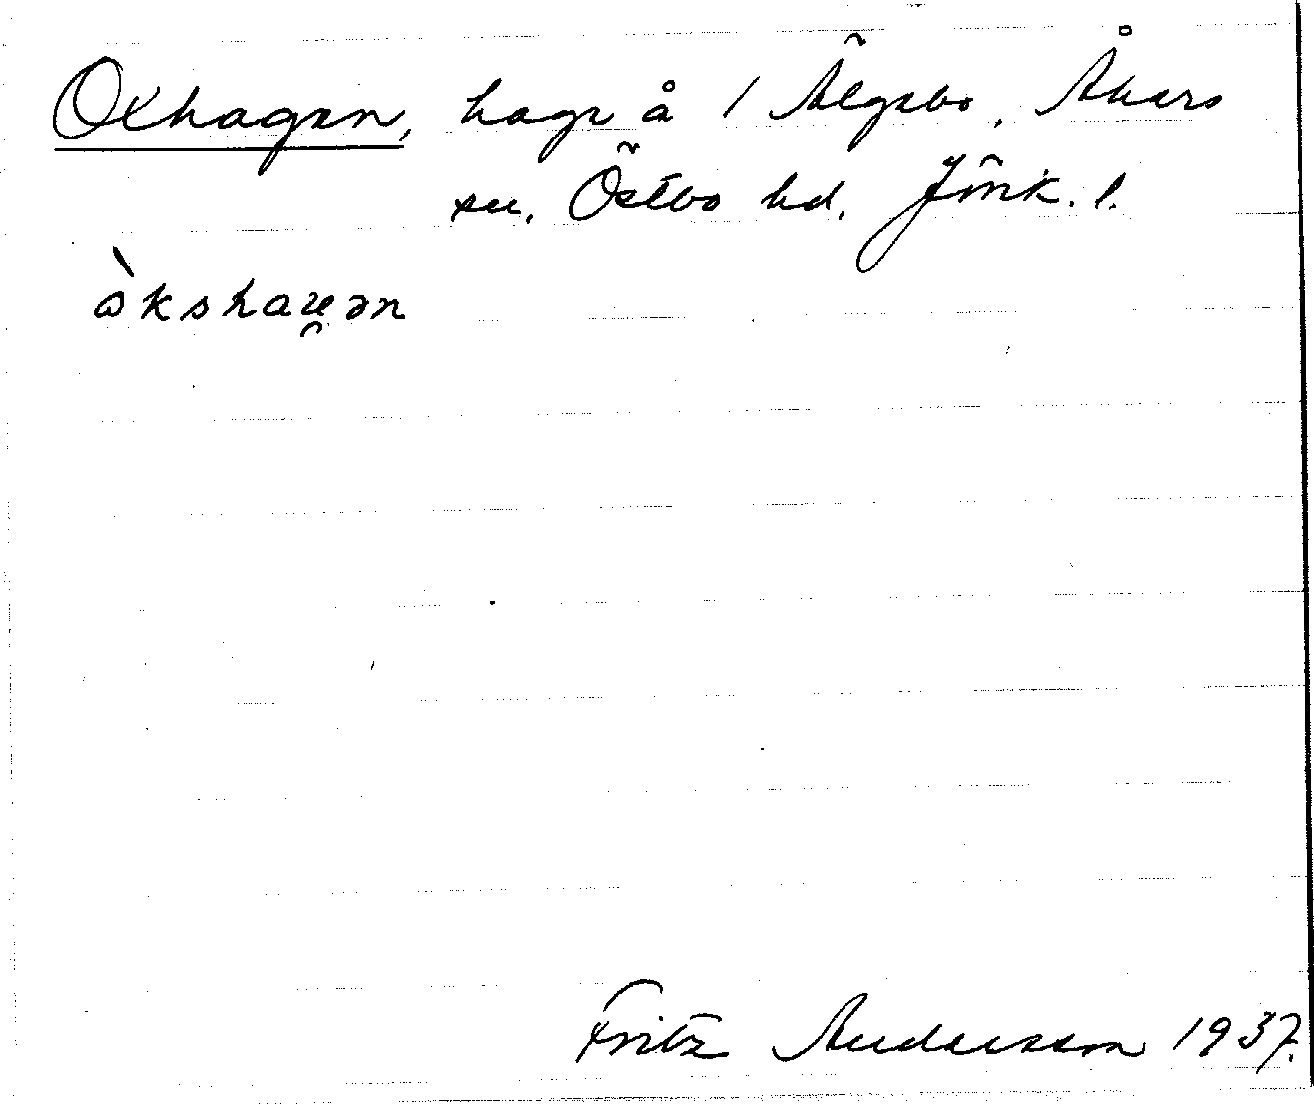 Oxhagen, hage å 1 Älgabo, Åkers
sn, Östbo hd, Jönk. l.
òkshau̯ən
Fritz Andersson 1937.